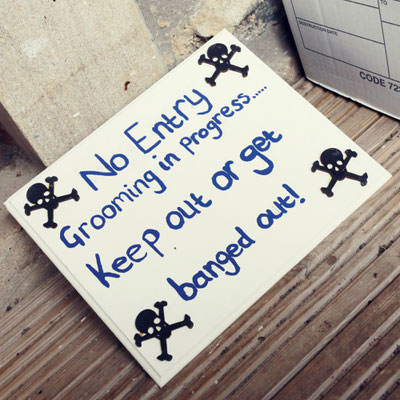 No Entry
Grooming in progress.....
Keep out or get
banged out!
TO
DESTRUCTION DATE
CODE 72